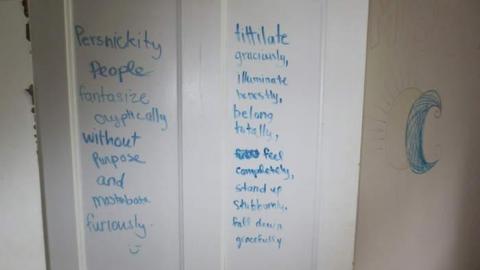 Persnickity
People
fantasize
cryptically
without
purpose
and
mastubate
furiously.
titilate
graciously,
illuminate
honestly,
belong
totally,
feel
completely,
stand up
stubbornly.
fall down
gracefully